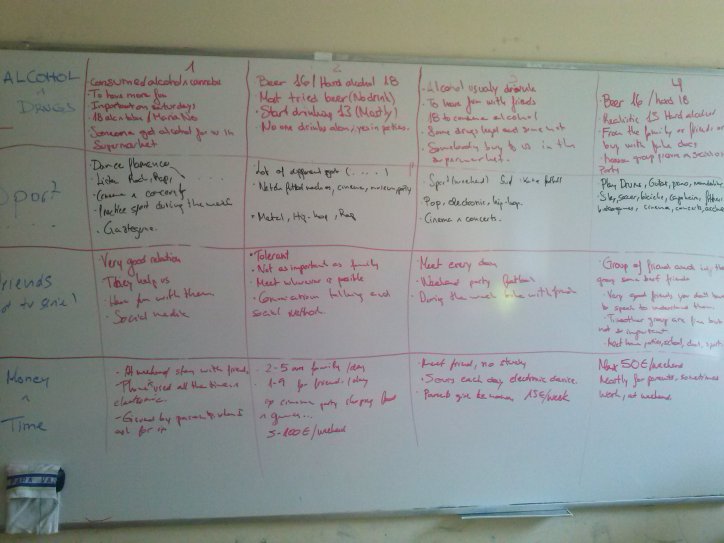 ALCOHOL
DRUGS
1
Consumed alcohol n cannabis
- To have more fun
Important on saturdays
- 18 alcohol / Maria No
- Someone get alcohol for us in
Supermarket
2
Beer 16 / Hard alcohol 18
Most tried beer (No drink)
- Start drinking 13 (Mostly)
- No one drinks alone, yes in parties.
3
- Alcohol usually drinkable
- To have fun with friends
18 to consume alcohol
- Some drugs legal and some not
- Somebody buy to us in the
supermarket.
4
- Beer 16 / hard 18
- Realistic 13 Hard alcohol
- From the family or friends or
buy with fake
group
Party
Sport
Dance Flamenco
- Listen Rock, Rap,
- Cinema n concerts
- Practice sport during the week
Lots of different sport (.....)
- Watch football matches, cinema, museum, party
- Metal, Hip-hop, Rap
- Sport (weekend) Surf
Pop, electronic, hip-hop.
- Cinema n concerts.
Play Drums, Guitar, piano, mandolin
Ski, soccer, bicicle, capoheira,
cinema, concerts,
Friends
Very good relation
They help us
- Have fun with them
- Social media
- Tolerant
- Not as important as family
- Meet whenever is posible
- Comunication talking and
social methods.
Meet every day
- Weekend party football
- During the week bike with friends
- Group of friends
group some best friends
- Very good friends you don't have
to speak to understand them.
- group are fine but
not so important
- Meet home parties, school, clubs, sports
Money
n
Time
- At weekend stay with friends
- Phone used all the time in
electronic.
- Gived by parents when I
ask for it
- 2-5 are family / day
- 1-9 for friends / day
cinema party shopping food
n games...
5-100€/weekend
- Meet friend, no study
- 5 ours each day electronic device.
- Parents give the money 15€/week
50€/weekend
Mostly for parents, sometimes
work, at weekend